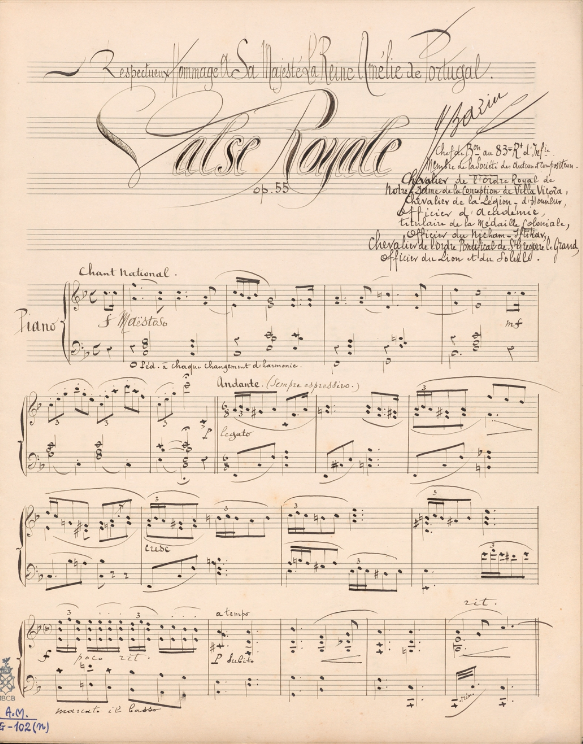 Respectueux Hommage A Sa Majesté La Reine Amélie de Portugal.
Valse Royale
op. 55
Bazin
Chef de Bon au 83e Rt d'Infie
Membre de la Société des Auteurs Composition.
Chevalier de l'Ordre Royal de
Notre-Dame de la Conception de Villa Vicosa,
Chevalier de la Légion-d'Honneur,
Officier d'Academie,
titulaire de la Médaille Coloniale,
Officier du Nicham-Iftikar,
Chevalier de l'ordre Pontifical de St Gregoire le Grand,
Officier du Lion et du Soleil.
Chant National.
Piano
f Maëstoso
mf
Ped. à chaque changement d'harmonie.
Andante. (Sempre espressivo.)
P
legato
3
3
3
cresc
3
3
3
3
3
3
a tempo
rit.
f
poco rit.
P Subito
marcato il basso
A.M.
G-102(n)